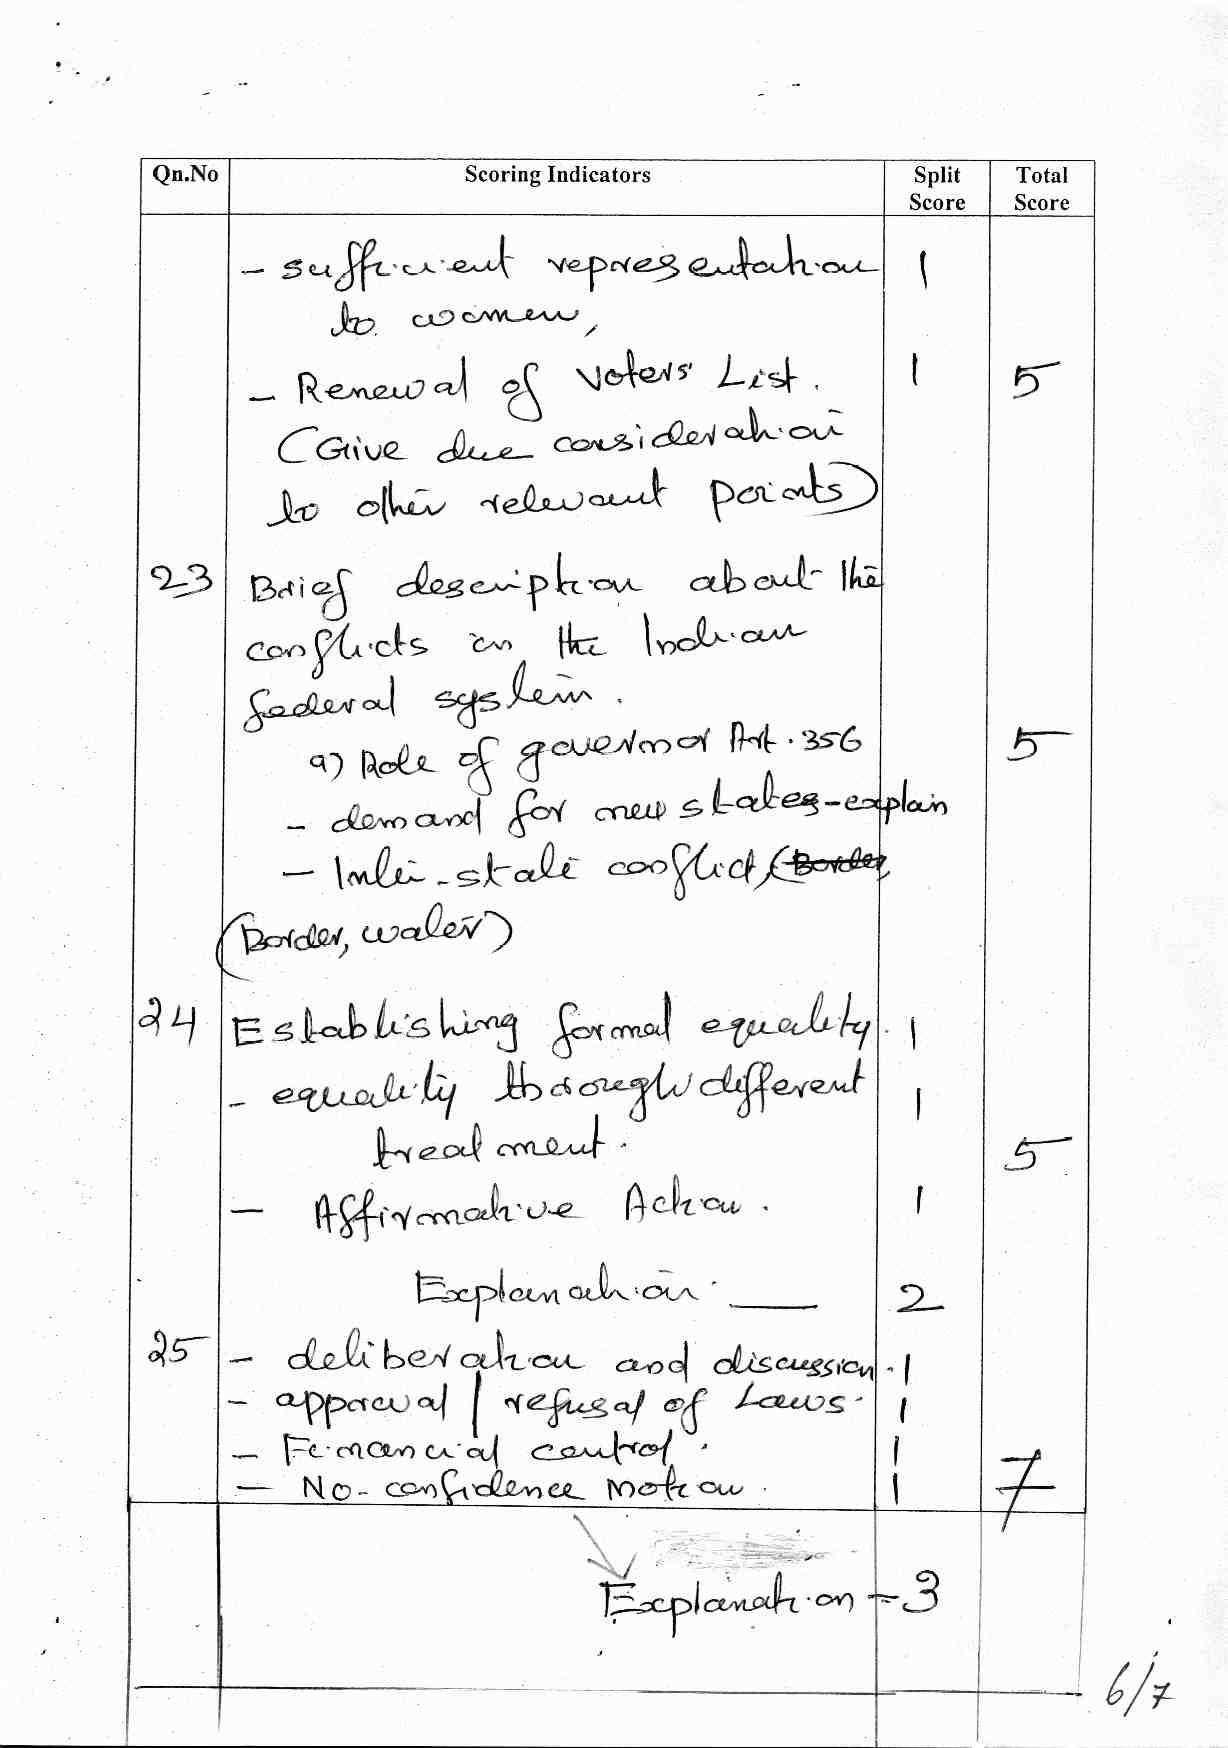 Qn.No Scoring Indicators Split Score Total Score
- sufficient representation 1
to women,
- Renewal of Voters' List. 1 5
(Give due consideration
to other relevant points)
23 Brief description about the
conflicts in the Indian
federal system.
a) Role of governor Art. 356 5
- demand for new states - explain
- Inter-state conflict, (Border,
(Border, water)
24 Establishing formal equality. 1
- equality thorough different 1
treatment. 5
- Affirmative Action. 1
Explanation. __ 2
25 - deliberation and discussion. 1
- approval / refusal of Laws. 1
- Financial control. 1
- No-confidence Motion. 1 7
Explanation = 3
6/7